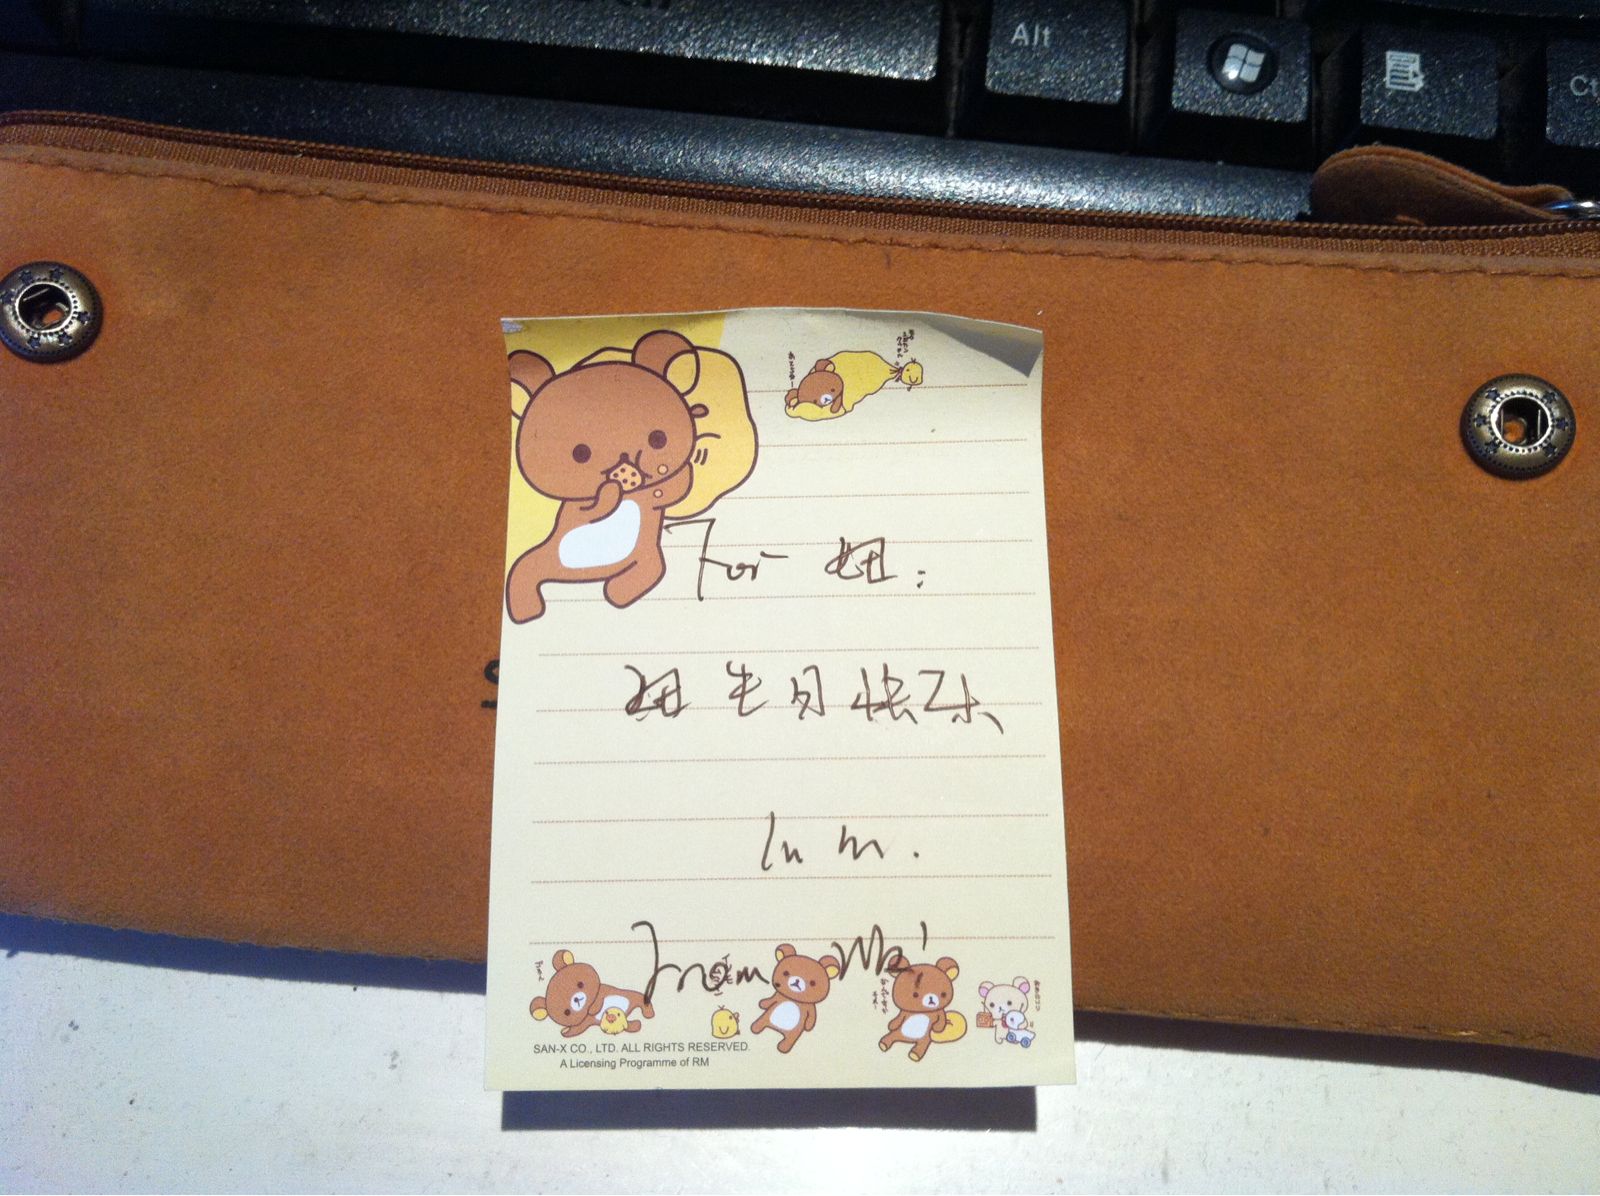 Alt
Ct
For 妞:
妞 生日快乐
In m.
From
SAN-X CO., LTD. ALL RIGHTS RESERVED.
A Licensing Programme of RM